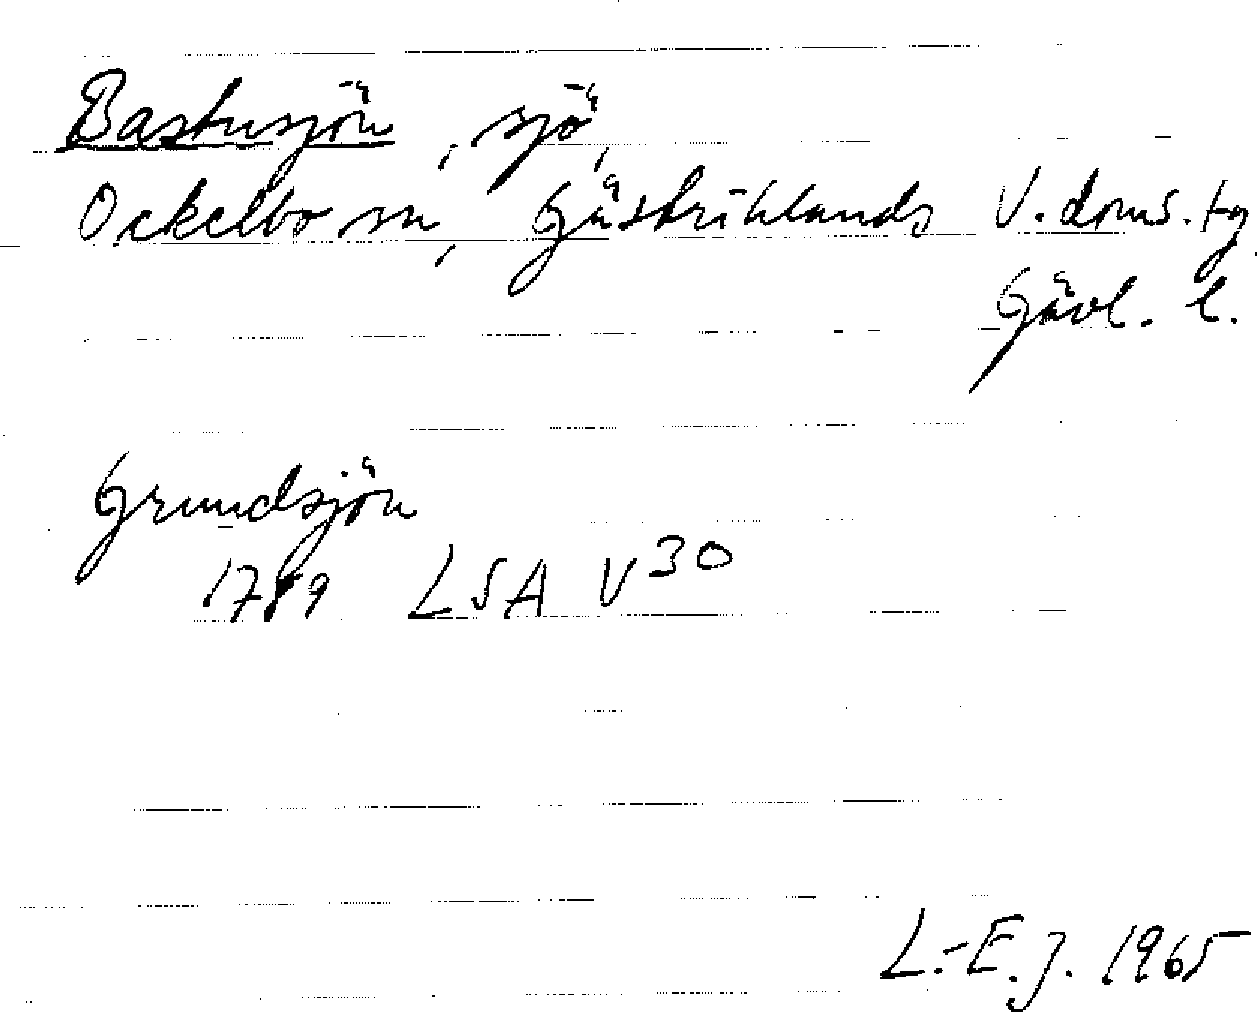 Bastusjön, sjö,
Ockelbo sn, Gästriklands V. doms.tg
Gävl. l.
Grundsjön
1789 LSA V30
L.-E.J. 1965